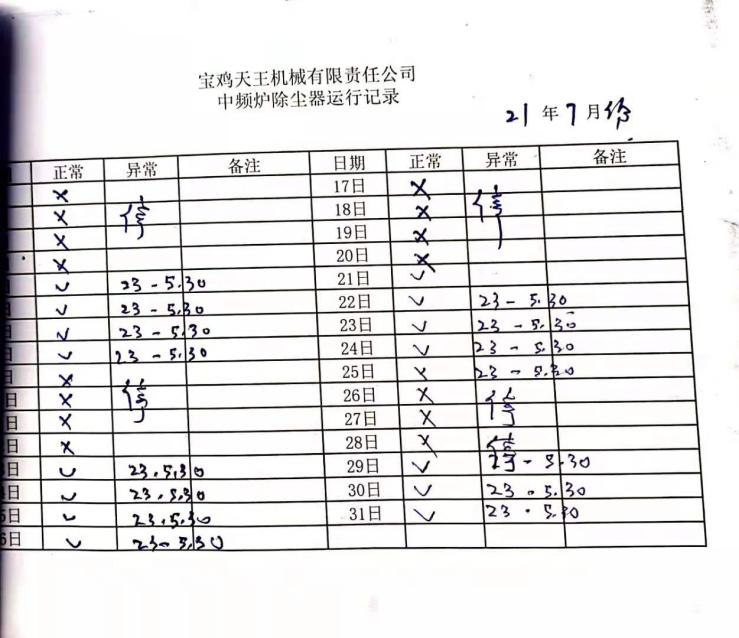 宝鸡天王机械有限责任公司
中频炉除尘器运行记录
21 年 7 月
正常 异常 备注 日期 正常 异常 备注
X 停 17日 X 停
X 18日 X
X 19日 X
X 20日 X
✓ 23 - 5.30 21日 ✓
✓ 23 - 5.30 22日 ✓ 23 - 5.30
✓ 23 - 5.30 23日 ✓ 23 - 5.30
✓ 23 - 5.30 24日 ✓ 23 - 5.30
日 X 25日 X 23 - 5.30
日 X 停 26日 X 停
日 X 27日 X
日 X 28日 X 停
日 ✓ 23.5.30 29日 ✓ 23 - 5.30
日 ✓ 23.5.30 30日 ✓ 23.5.30
5日 ✓ 23.5.30 31日 ✓ 23.5.30
6日 ✓ 23-5.30